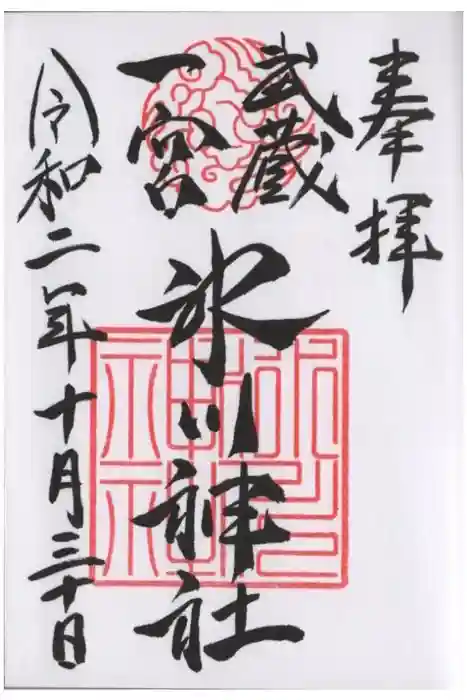 奉拝
武蔵
一宮
氷川神社
令和二年十月三十日
氷川
神社